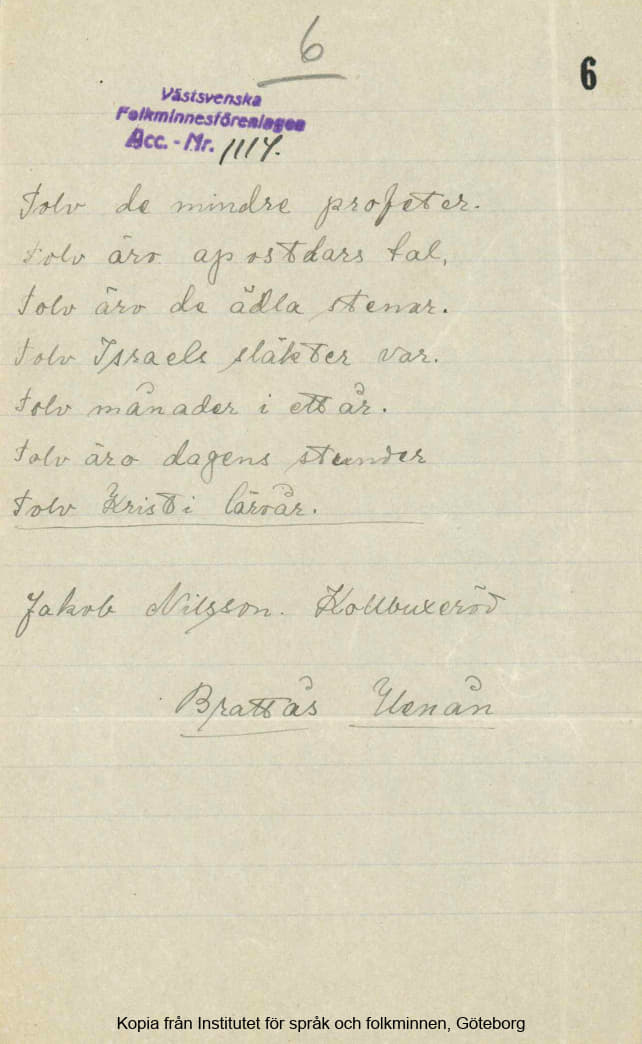 6
6
Västsvenska
Folkminnesföreningen
Acc. - Nr. 1114.
Tolv de mindre profeter.
Tolv äro apostdars tal,
Tolv äro de ädla stenar.
Tolv Israels släkter var.
Tolv månader i ett år.
Tolv äro dagens stunder
Tolv Kristi lärvår.
Jakob Nilsson. Kollbuxeröd
Brattås Henån
Kopia från Institutet för språk och folkminnen, Göteborg